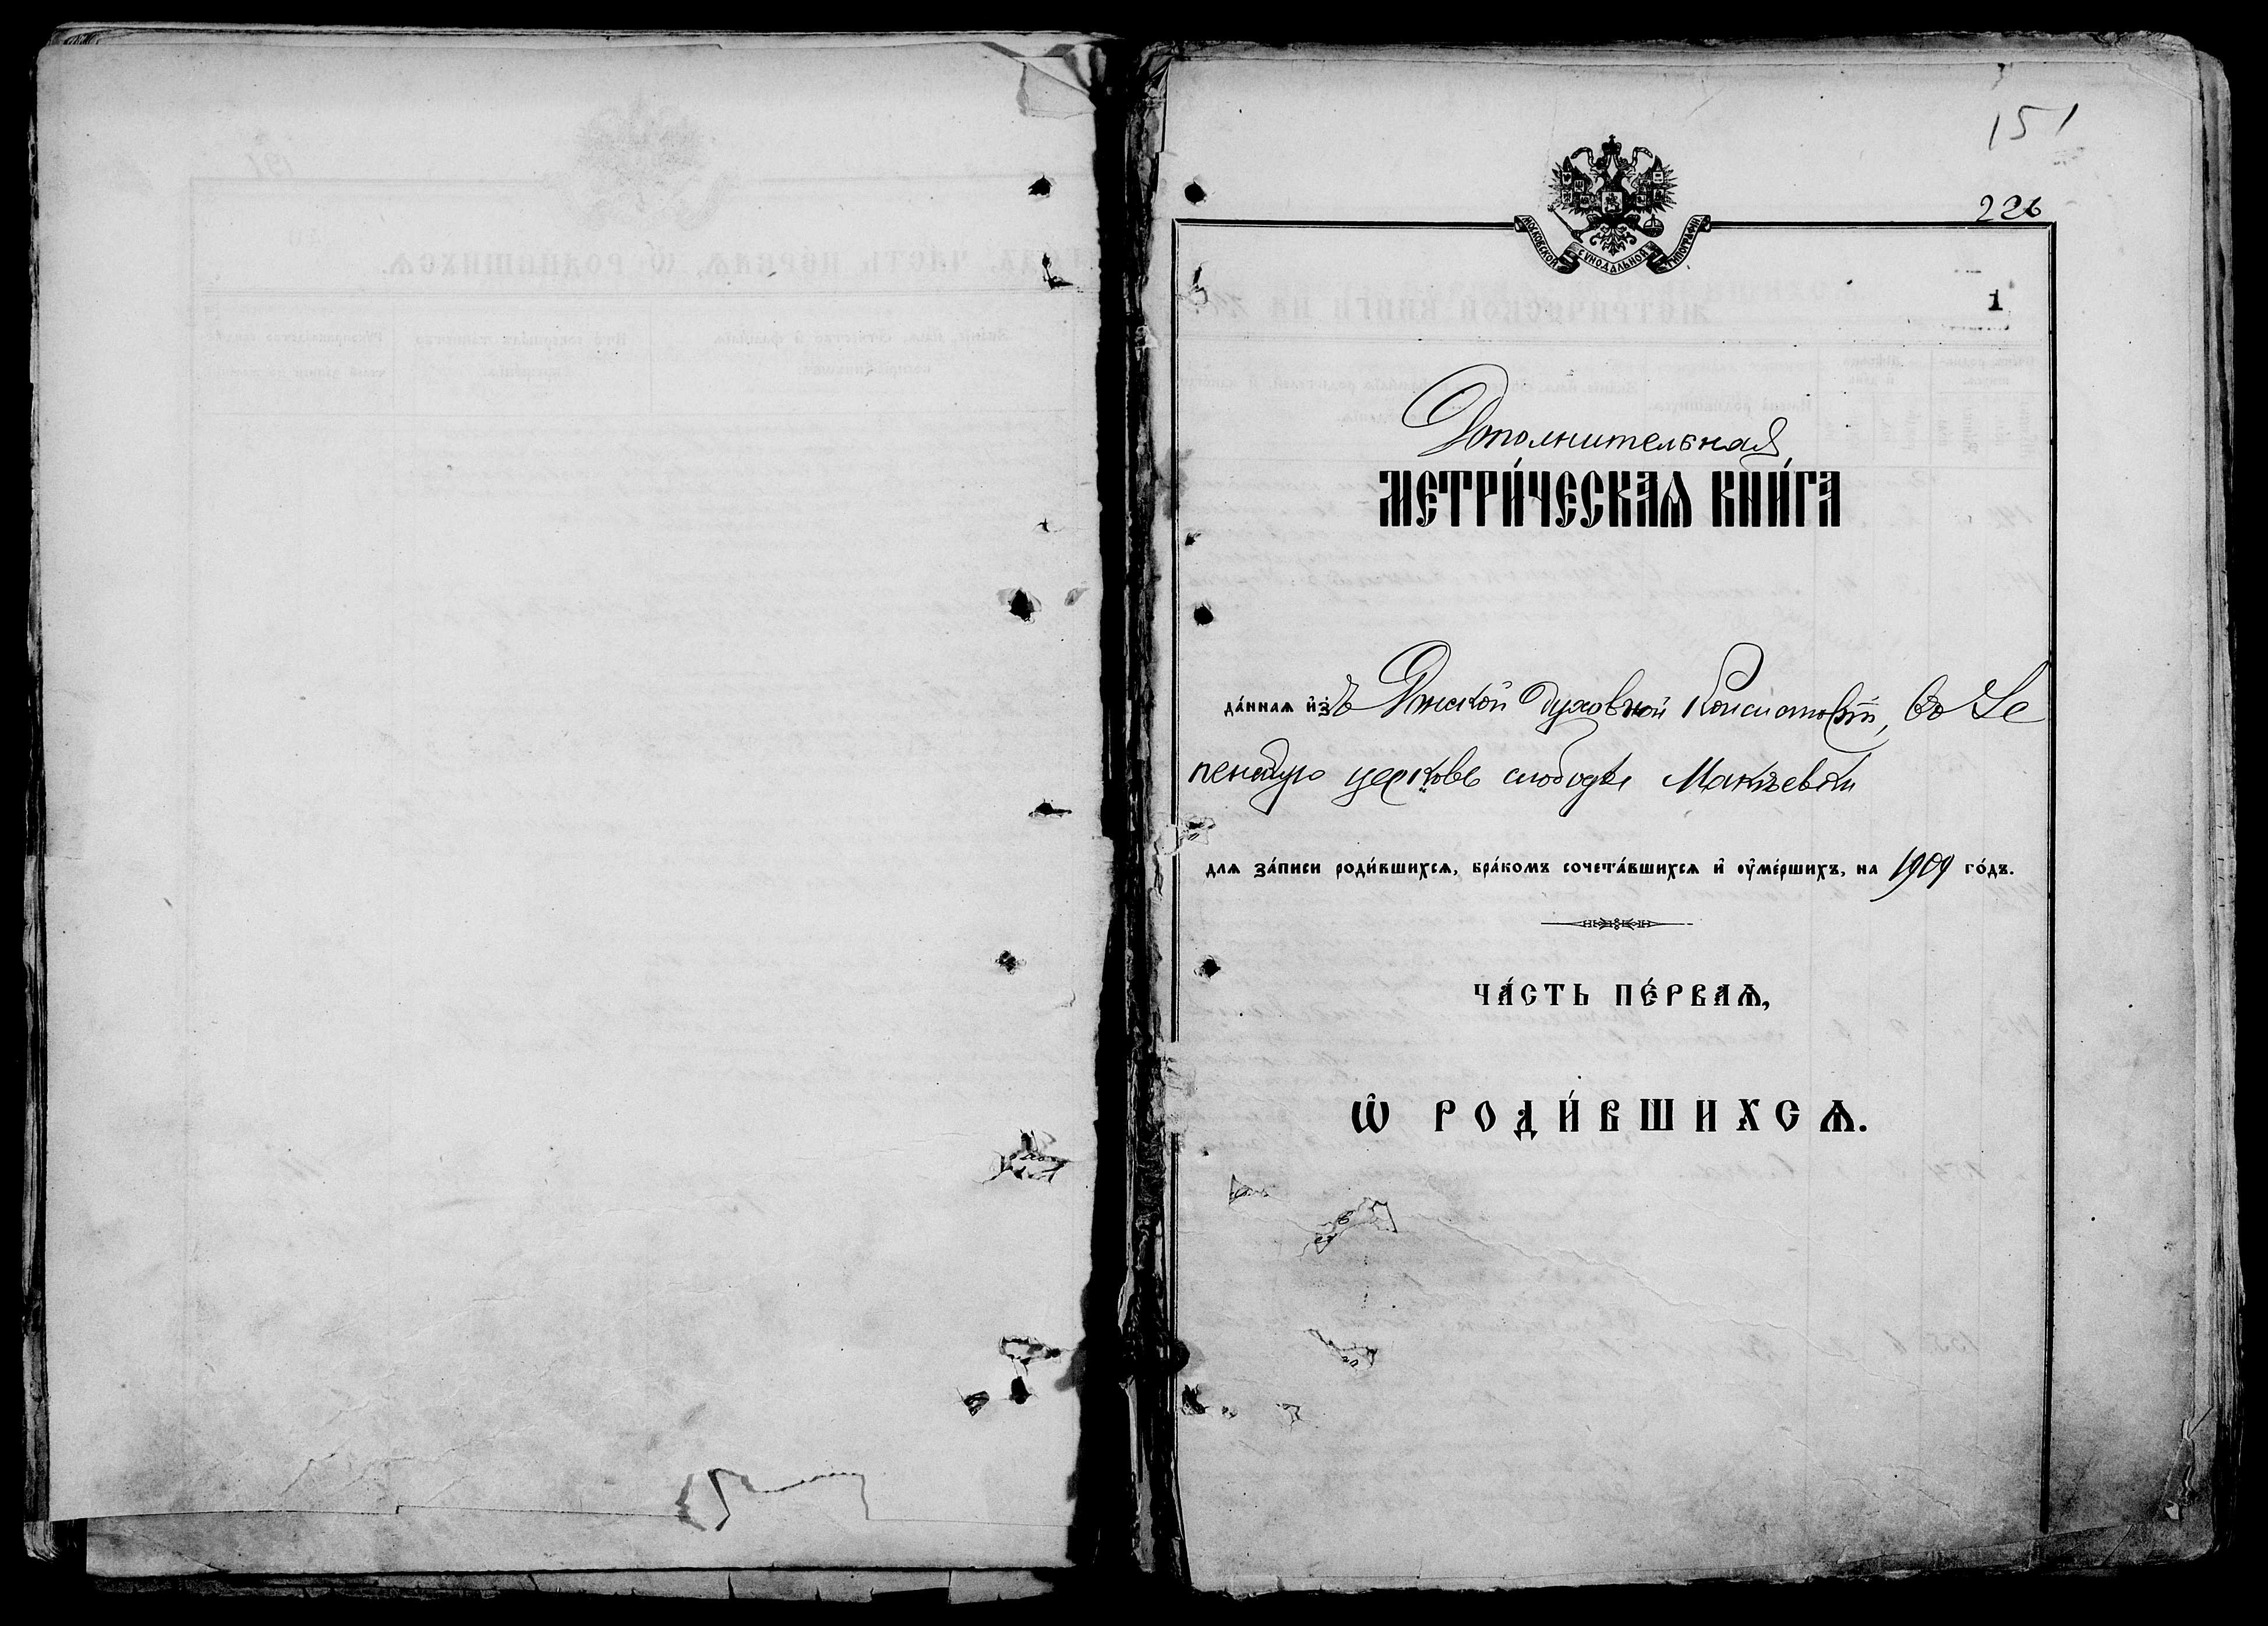 151
226
МОСКОВСКОЙ СѴНОДАЛЬНОЙ ТИПОГРАФІИ
1
Дополнительная
МЕТРИ́ЧЕСКАѦ КНИ́ГА
да́ннаѧ и҆зъ Донской Духовной Консисторіи, во Ус
пенскую церковь слободы Макѣевки
для за́писи роди́вшихсѧ, бра́комъ сочета́вшихсѧ и҆ ᲂу҆ме́ршихъ, на 1909 го́дъ.
ЧА́СТЬ ПЕ́РВАѦ,
Ѽ РОДИ́ВШИХСѦ.